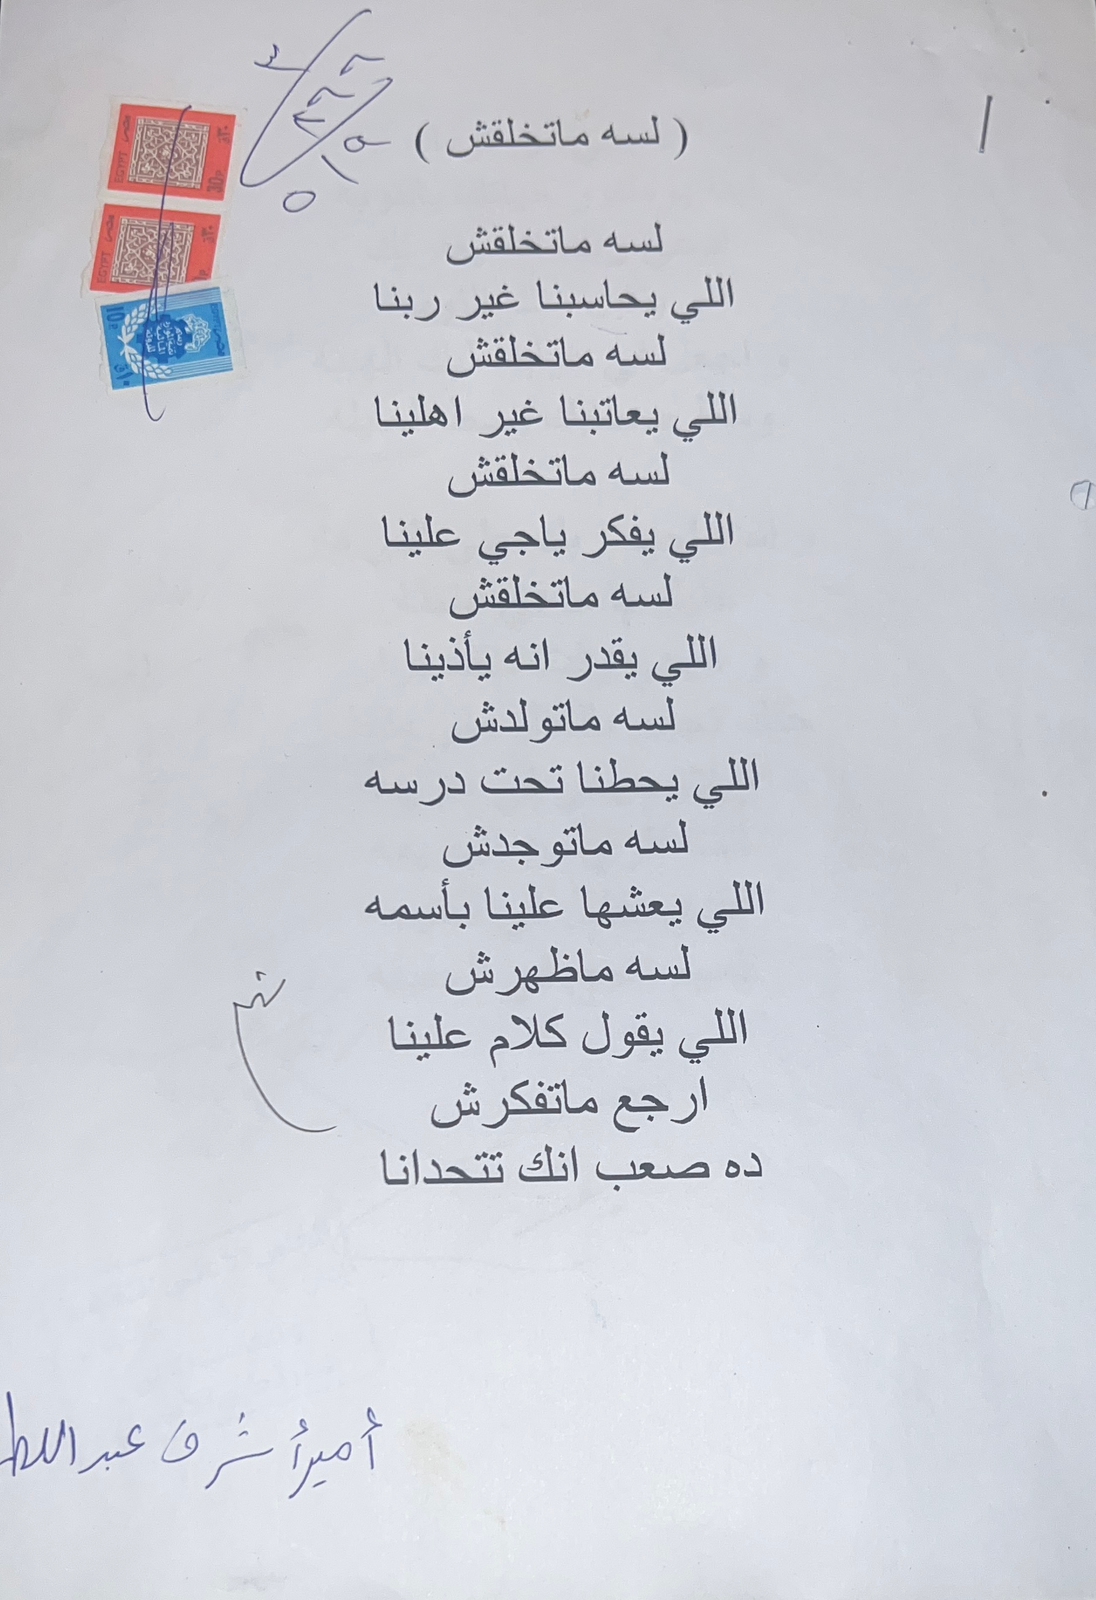 ( لسه ماتخلقش )
لسه ماتخلقش
اللي يحاسبنا غير ربنا
لسه ماتخلقش
اللي يعاتبنا غير اهلينا
لسه ماتخلقش
اللي يفكر ياجي علينا
لسه ماتخلقش
اللي يقدر انه يأذينا
لسه ماتولدش
اللي يحطنا تحت درسه
لسه ماتوجدش
اللي يعشها علينا بأسمه
لسه ماظهرش
اللي يقول كلام علينا
ارجع ماتفكرش
ده صعب انك تتحدانا
EGYPT مصر
30P
EGYPT مصر
أمير أشرف عبد اللط